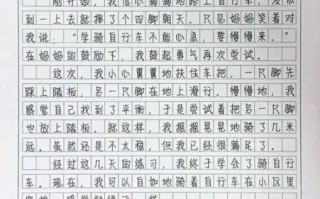 刚开始，我信心满满地跨上自行车，没想
到一上去就摔了个四脚朝天。只见妈妈笑着对
我说："学骑自行车不能心急，要慢慢来。"
在妈妈的鼓励下，我鼓起勇气再次尝试。
这次，我小心翼翼地扶住车把，一只脚先
踩上踏板，另一只脚在地上滑行。慢慢地，我
感觉自己找到了平衡，于是尝试着把另一只脚
也放上踏板，就这样，我摇摇晃晃地骑了几米
远。虽然还是不太稳，但我已经很满足了。
经过这几天的练习，我终于学会了骑自行
车。现在，我可以自如地骑着自行车在小区里